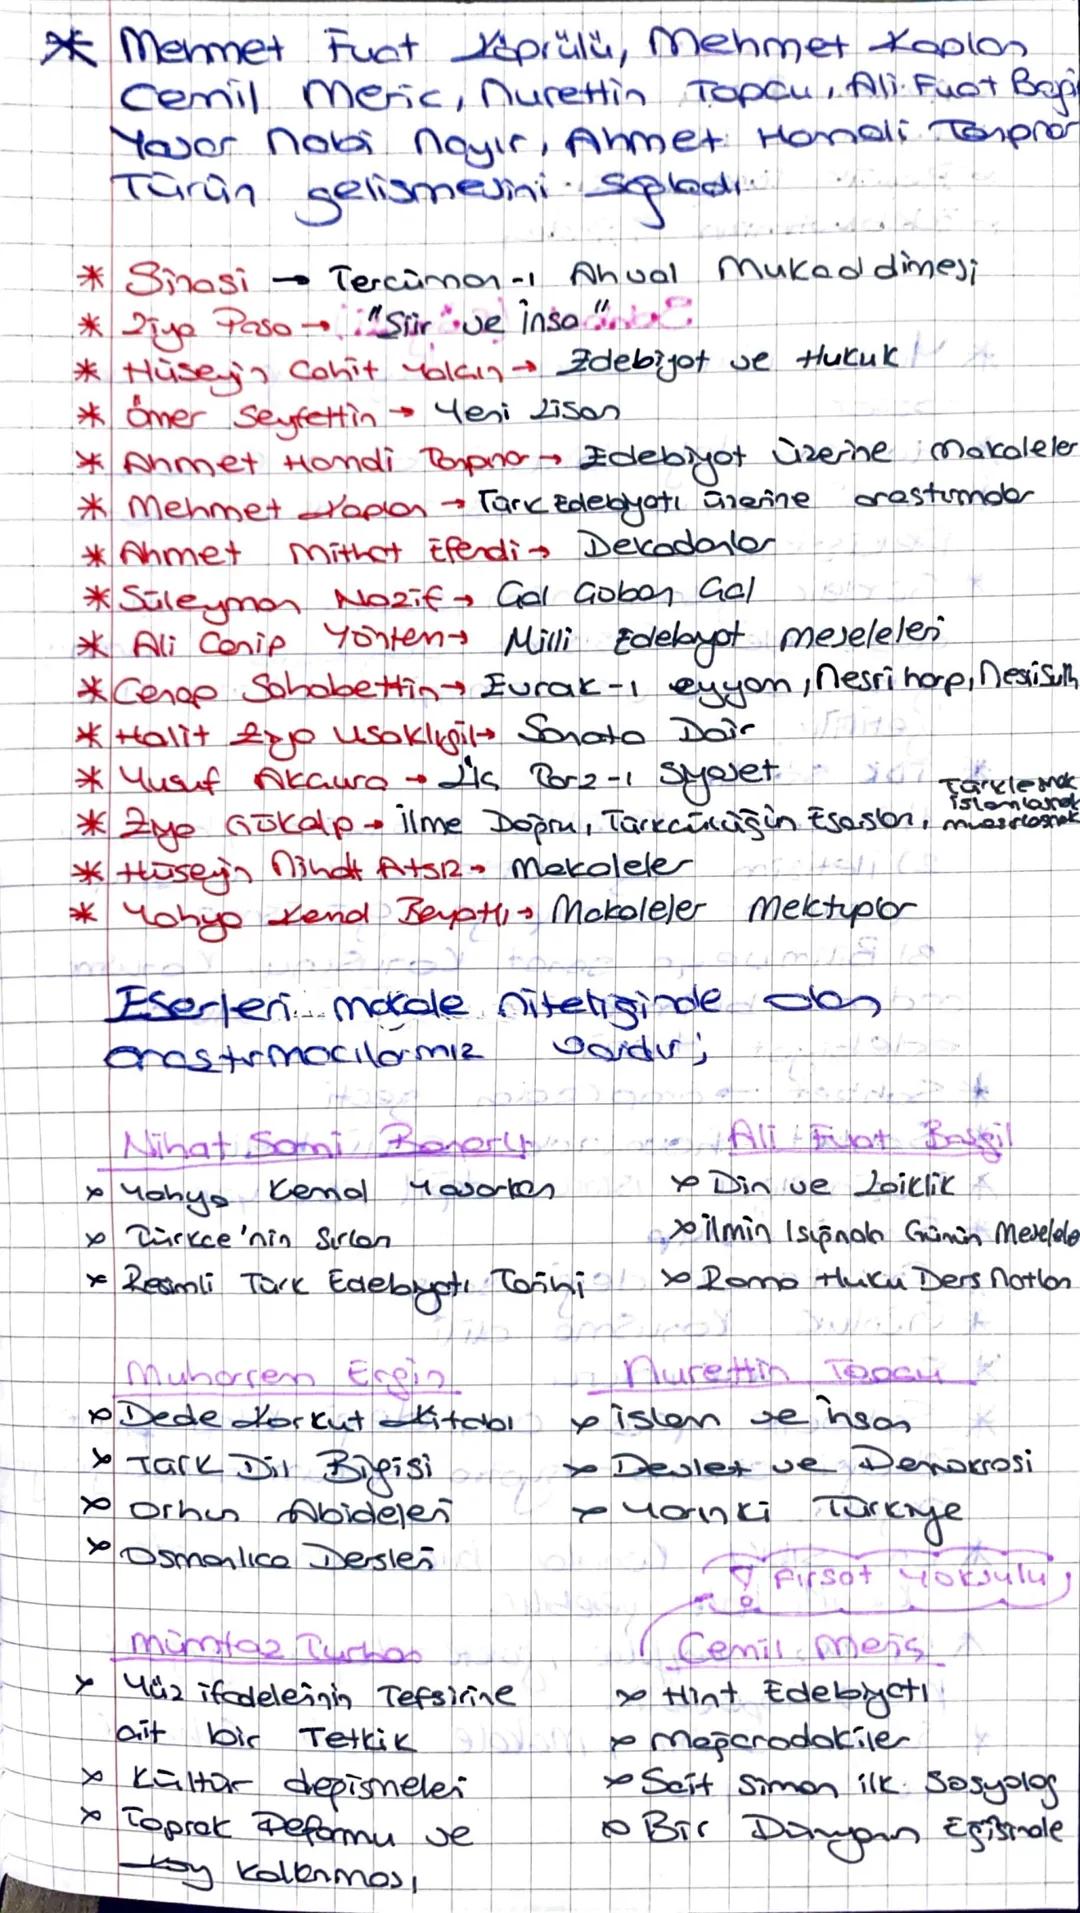 * Mehmet Fuat Köprülü, Mehmet Kaplan
Cemil Meric, Nurettin Topcu, Ali Fuat Başgi
Yasar Nabi Nayır, Ahmet Hamdi Tanpınar
Türün gelismesini sagladı.
* Sinasi → Tercüman-ı Ahval Mukaddimesi
* Ziya Pasa → "Siir ve İnsa"
* Hüseyin Cahit Yalcın → Edebiyat ve Hukuk
* Ömer Seyfettin → Yeni Lisan
* Ahmet Hamdi Tanpınar → Edebiyat üzerine Makaleler
* Mehmet Kaplan → Türk Edebiyatı üzerine arastırmalar
* Ahmet Mithat Efendi → Dekadanlar
* Süleyman Nazif → Gal Goban Gal
* Ali Canip Yöntem → Milli Edebiyat meseleleri
* Cenap Sahabettin → Evrak-ı eyyam, Nesri harp, Nesri Sulh
* Halit Ziya Usaklıgil → Sanata Dair
* Yusuf Akcura → Üç Tarz-ı Siyaset
* Ziya Gökalp → İlme Dogru, Türkcülügün Esasları, Türklesmek islamlasmak muasırlasmak
* Hüseyin Nihal Atsız → Makaleler
* Yahya Kemal Beyatlı → Makaleler Mektuplar
Eserleri makale niteliginde olan
arastırmacılarımız vardır;
Nihat Sami Banarlı
x Yahya Kemal Yasarken
x Türkce'nin Sırları
x Resimli Türk Edebiyatı Tarihi
Ali Fuat Basgil
x Din ve Laiklik
x ilmin Isıgında Günün Meselele
x Roma Huku Ders Notları
Muharrem Ergin
x Dede Korkut Kitabı
x Türk Dil Bilgisi
x Orhun Abideleri
x Osmanlıca Dersleri
Nurettin Topcu
x islam ve insan
x Devlet ve Demokrasi
x Yarınki Türkiye
Fırsat Yoksulu
Mümtaz Turhan
x Yüz ifadelerinin Tefsirine
ait bir Tetkik
x Kültür degismeleri
x Toprak Reformu ve
köy kalkınması
Cemil Meriç
x Hint Edebiyatı
x Magaradakiler
x Sait Simon ilk Sosyolog
x Bir Dünyanın Eşiginde